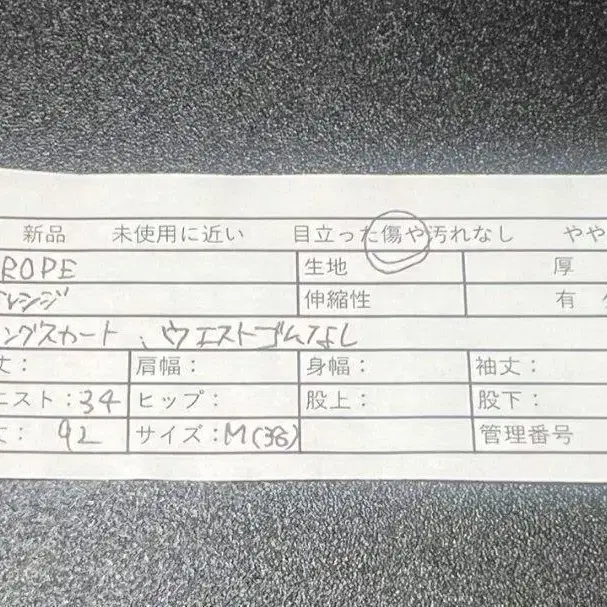 新品 未使用に近い 目立った傷や汚れなし やや
ROPE 生地 厚
レンジ 伸縮性 有
ングスカート、ウエストゴムなし
丈： 肩幅： 身幅： 袖丈：
エスト：34 ヒップ： 股上： 股下：
丈： 92 サイズ：M(38) 管理番号